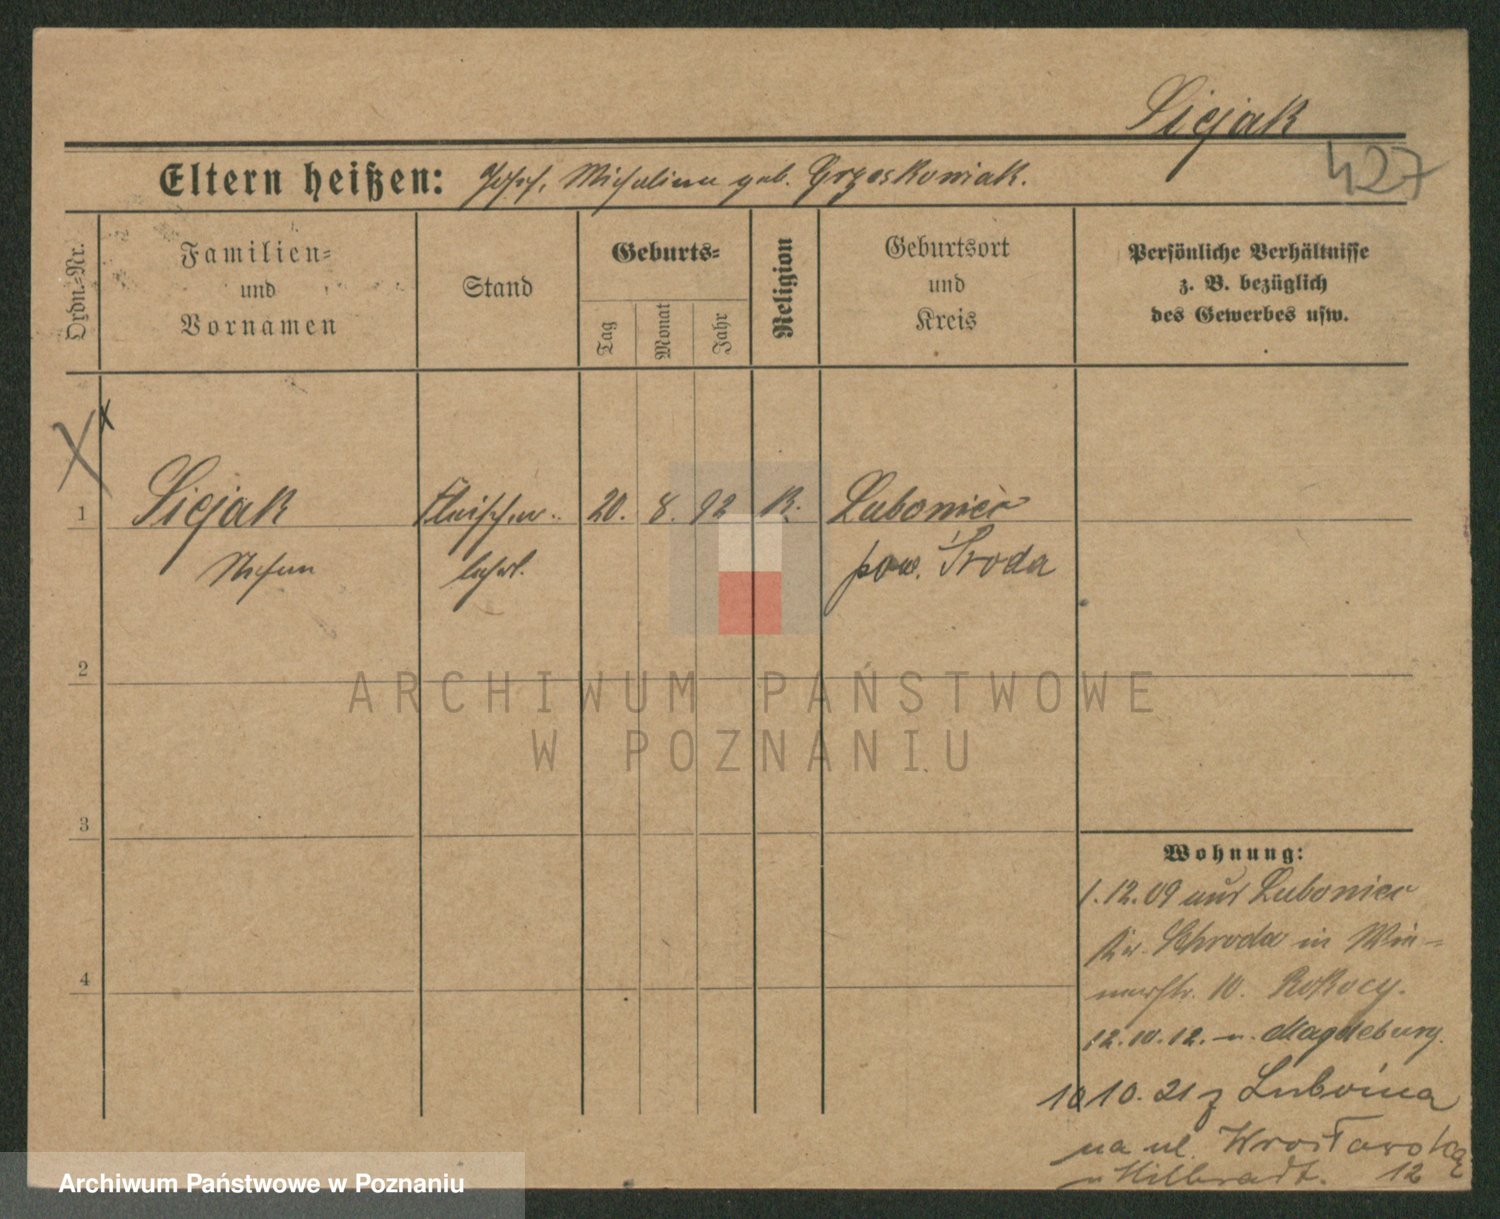 Siejak
427
Eltern heißen: Josef, Michalina geb. Grzeskowiak.
Ordn.-Nr.
Familien-
und
Vornamen
Stand
Geburts-
Tag
Monat
Jahr
Religion
Geburtsort
und
Kreis
Persönliche Verhältnisse
z. B. bezüglich
des Gewerbes usw.
1 Siejak Fleischer- 20. 8. 92 K. Lubonieć
Stefan lehrl. pow. Środa
2
ARCHIWUM PAŃSTWOWE
W POZNANIU
3
Wohnung:
1.12.09 aus Luboniec
Kr. Schroda in
10.
4
12.10.12. n. Magdeburg.
10 10. 21 z
na ul. Wrocławską
12
Archiwum Państwowe w Poznaniu